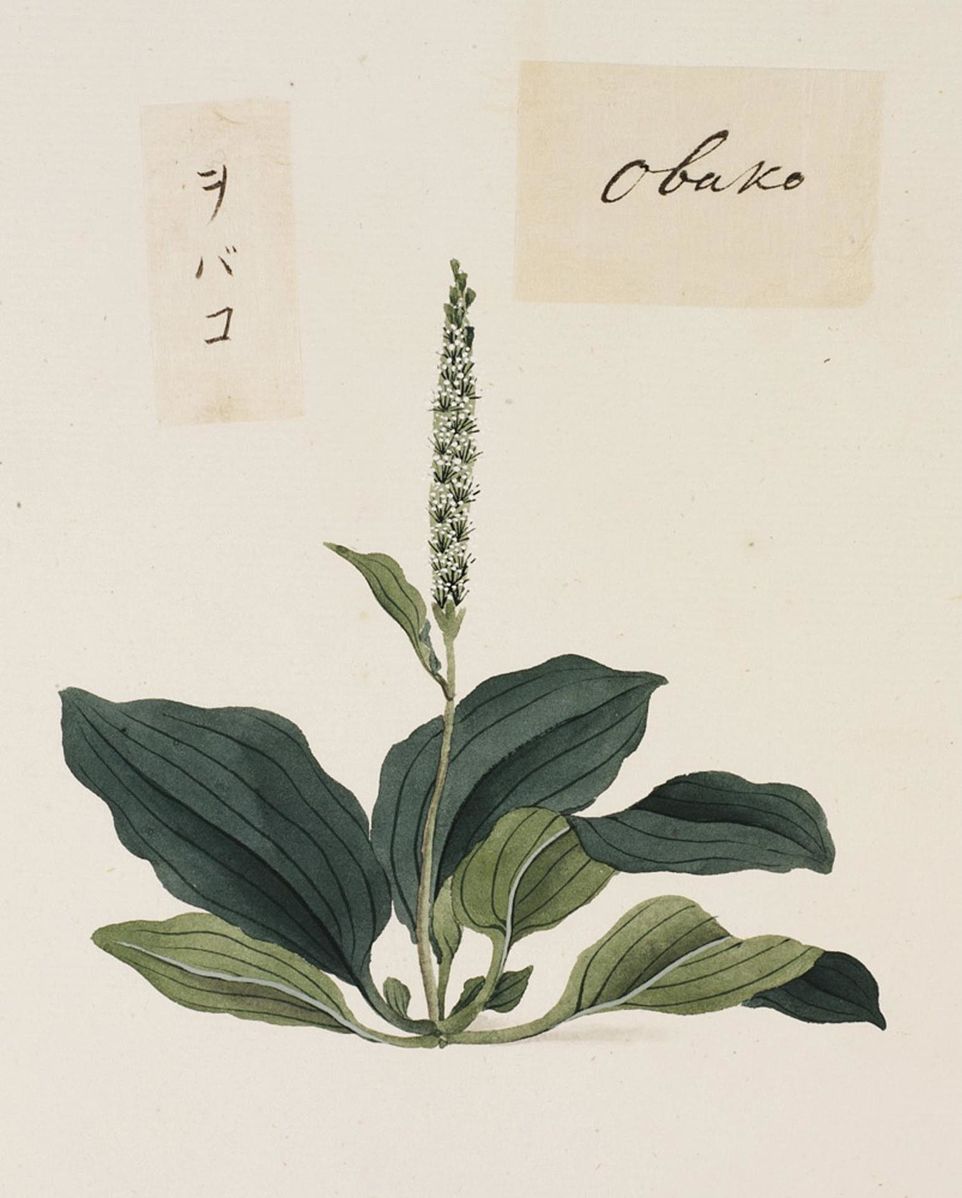 ヲバコ
Obako